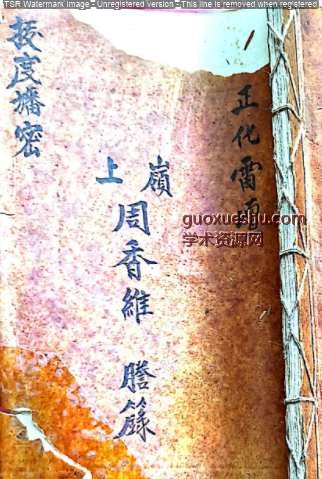 TSR Watermark Image - Unregistered version - This line is removed when registered
正化雷壇
嶺上
周香維 謄錄
拔度旛密
guoxueshu.com
学术资源网